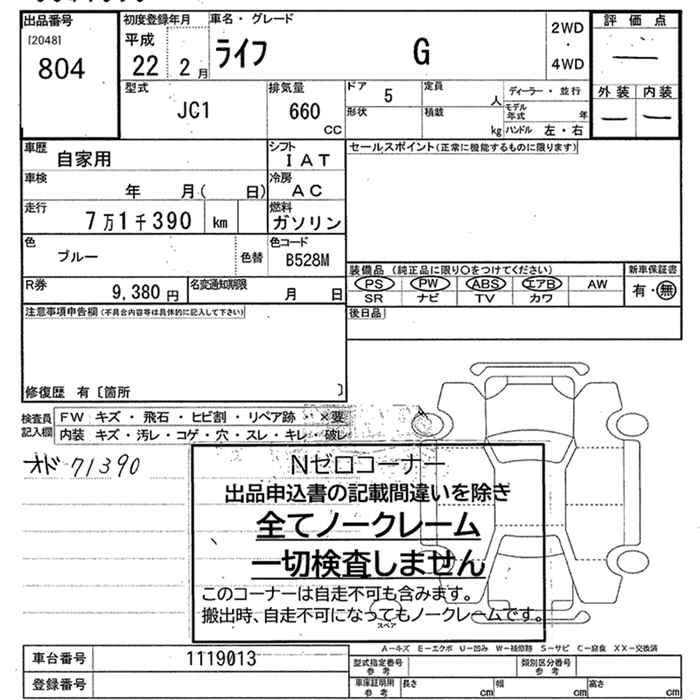 出品番号
[2048]
804
初度登録年月
平成
22 2 月
車名・グレード
ライフ G
2WD
・
4WD
評価点
—
外装 内装
— —
型式
JC1
排気量
660
CC
ドア
5
定員
人
形状
積載
kg
ディーラー・並行
モデル年式 年
ハンドル 左・右
車歴
自家用
シフト
IAT
車検
年 月( 日)
冷房
AC
走行
7万1千390 km
燃料
ガソリン
色
ブルー
色替
色コード
B528M
R券
9,380 円
名変通知期限
月 日
セールスポイント(正常に機能するものに限ります)
装備品 (純正品に限り○をつけてください)
PS PW ABS エアB AW
SR ナビ TV カワ
新車保証書
有・無
後日品
注意事項申告欄(不具合内容等は具体的に記入して下さい)
修復歴 有〔箇所 〕
検査員記入欄
FW キズ・飛石・ヒビ割・リペア跡・×要
内装 キズ・汚レ・コゲ・穴・スレ・キレ・破レ
オド 71390
Nゼロコーナー
出品申込書の記載間違いを除き
全てノークレーム
一切検査しません
このコーナーは自走不可も含みます。
搬出時、自走不可になってもノークレームです。
スペア
A−キズ E−エクボ U−凹み W−補修跡 S−サビ C−腐食 XX−交換済
車台番号 1119013
登録番号
型式指定番号参考
類別区分番号参考
車庫証明用参考
長さ cm 幅 cm 高さ cm